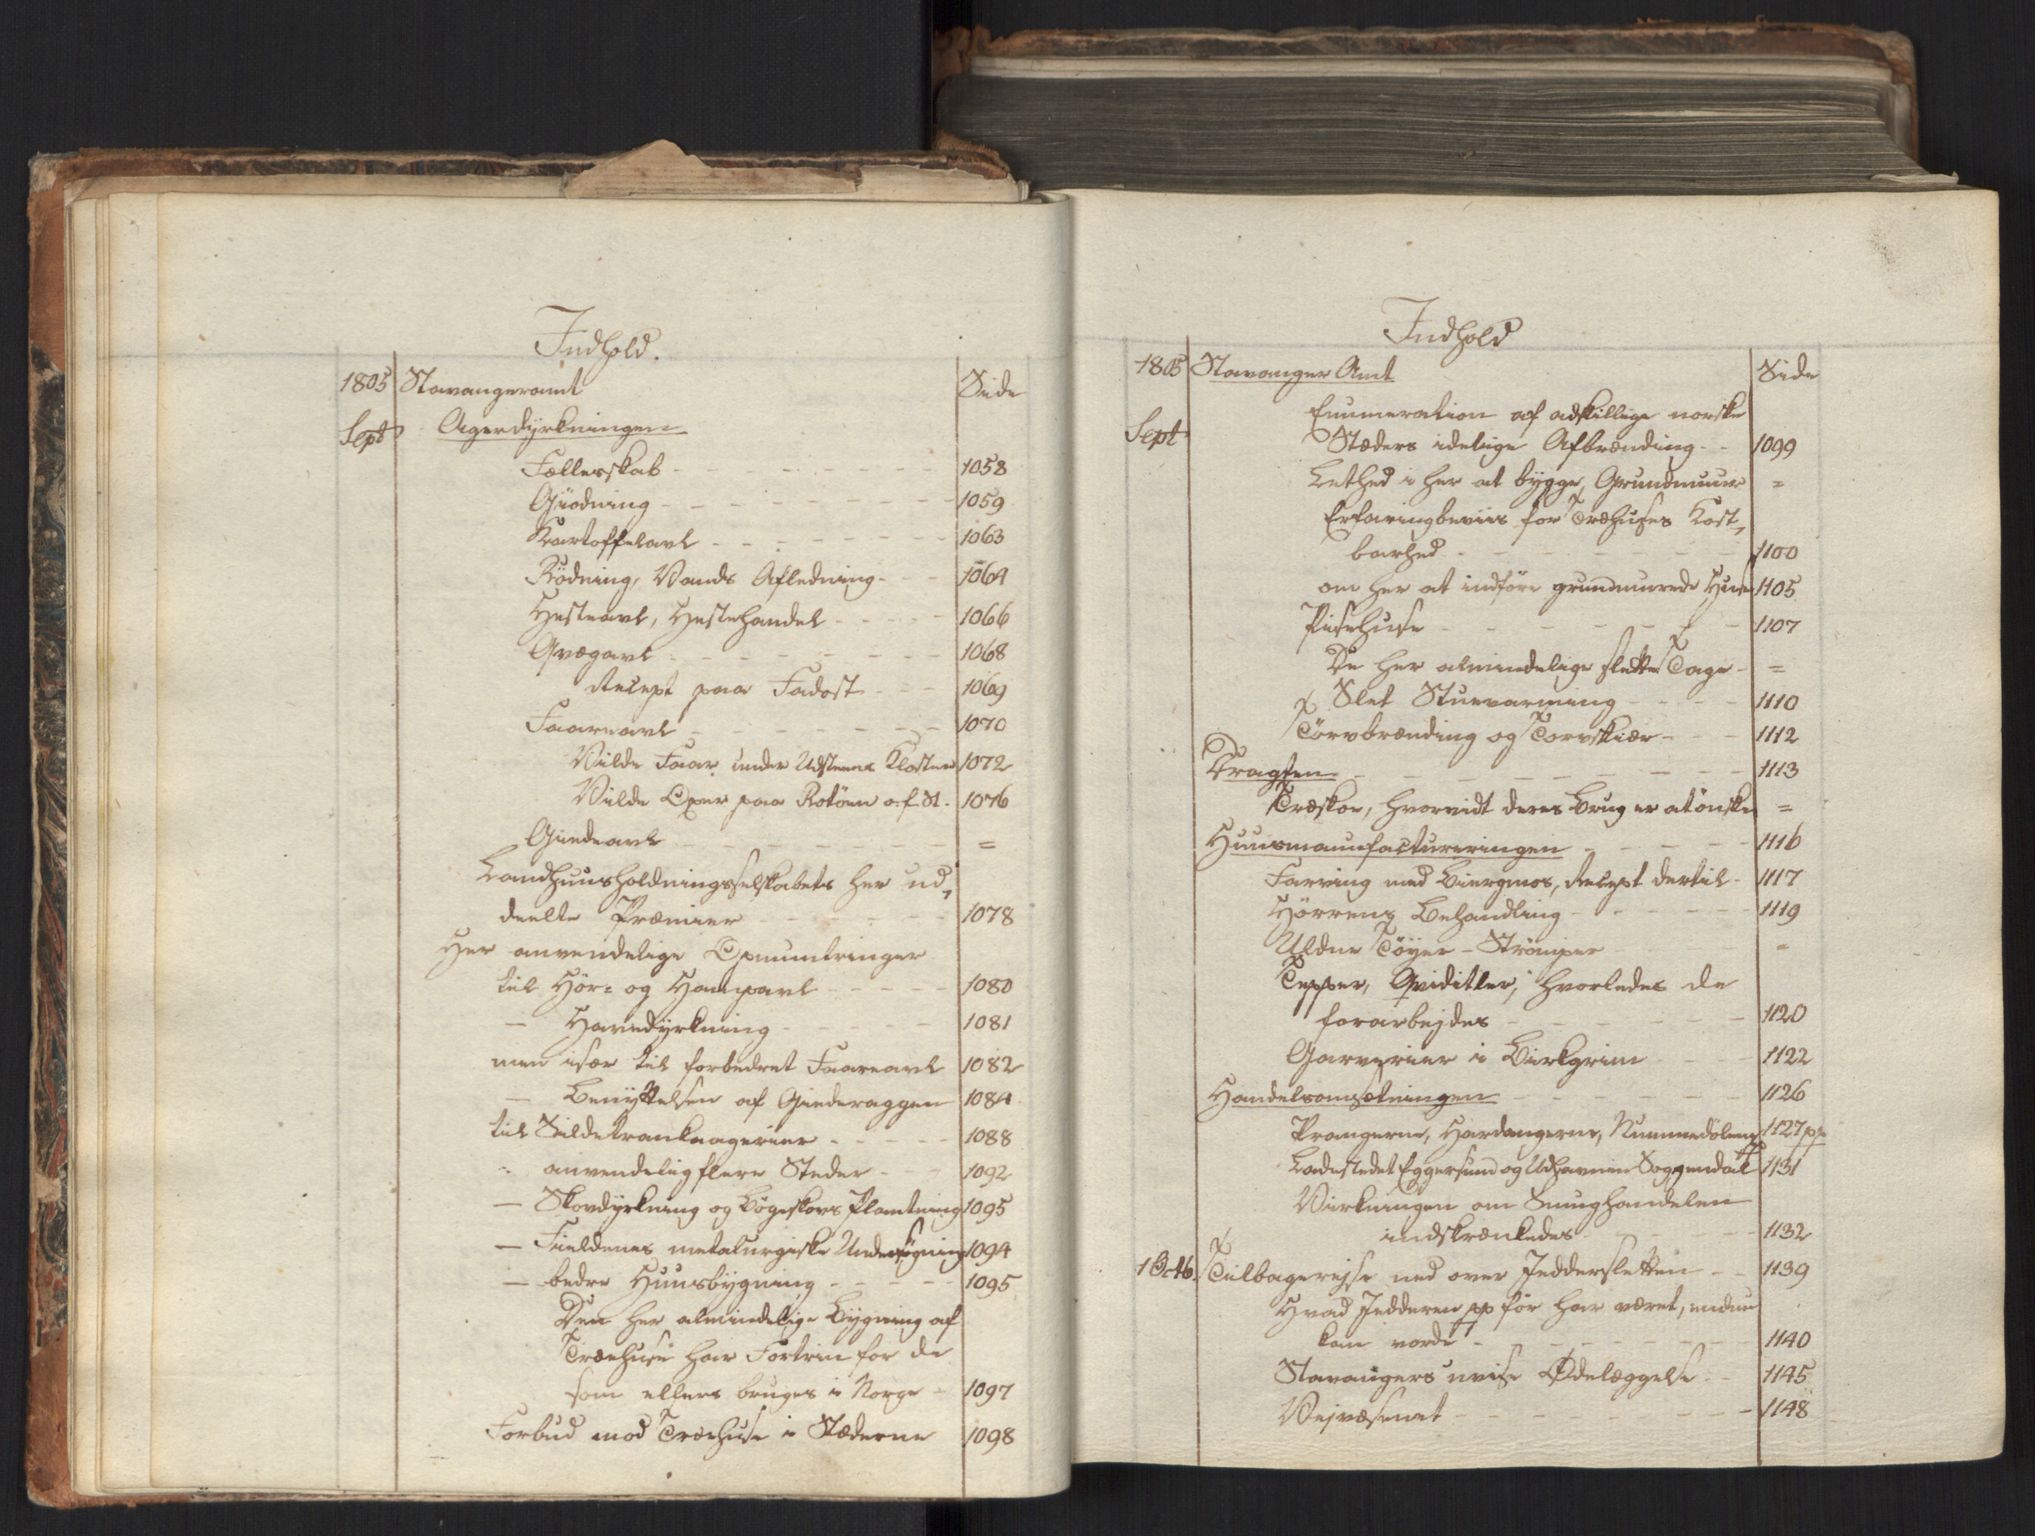 Indhold.
1805 Stavangeramt Side
Sept Agerdyrkningen
Fællesskab - - - - - - - - 1058
Giödning - - - - - - - 1059
Kartoffelavl - - - - - - - 1063
Rödning, Vands Afledning - - - 1064
Hesteavl, Hestehandel - - - - 1066
Qvægavl - - - - - - - - 1068
Recept paa Fadost - - - 1069
Faareavl - - - - - - - 1070
Vilde Faar under Udsteens Kloster 1072
Vilde Oxer paa Rotöen o.f. St. 1076
Giedeavl - - - - - - - - =
Landhuusholdningsselskabets her ud,
deelte Præmier - - - - - - 1078
Her anvendelige Opmuntringer
til Hör= og Hampavl - - - - - 1080
— Havedyrkning - - - - - 1081
men især til forbedret Faareavl 1082
— Benyttelsen af Giederaggen 1084
til Sildetrankaagerier - - - - - 1088
" anvendelig flere Steder - - - 1092
— Skovdyrkning og Bögeskovs Plantning 1095
— Fieldenes metalurgiske Undersögning 1094
— bedre Huusbygning - - - - - 1095
Den her almindelige Bygning af
Træehuse har Fortrin for de
som ellers bruges i Norge - 1097
Forbud mod Træehuse i Stæderne 1098
Indhold
1805 Stavanger Amt Side
Enumeration af adskillige norske
Sept Stæders idelige Afbrænding - - 1099
Lethed i her at bygge Grundmuur =
Erfaringbeviis for Træhuses Kost,
barhed - - - - - - - - 1100
om her at indföre grundmurede Huse 1105
Pisehuse - - - - - - - - 1107
De her almindelige slette Tage - =
Slet Stuevarming - - - - 1110
Törvbrænding og Torvskiær - - - 1112
Dragten - - - - - - - - - 1113
Træskoe, hvorvidt deres Brug er at önske =
Huusmanufactureringen - - - - - 1116
Farving med Biergmos, Recept dertil - 1117
Hörrens Behandling - - - - - - 1119
Uldne Töyer - Strömper - - - =
Tepper, Qviditler, hvorledes de
forarbejdes - - - - - - - 1120
Garverier i Birkgrim - - - 1122
Handelsomsetningen - - - - - - 1126
Prangerne, Hardangerne, Nummedölerne 1127 pp
Ladestedet Eggersund og Udhavnen Soggendal 1131
Virkningen om Smughandelen
indskrænkedes - - - - - 1132
1 Octb. Tilbagerejse ned over Jeddersletten - - 1139
Hvad Jedderen pp för har været, endnu
kan vorde - - - - - - - - 1140
Stavangers uvise Ödelæggelse - - 1145
Vejvæsenet - - - - - - - - 1148